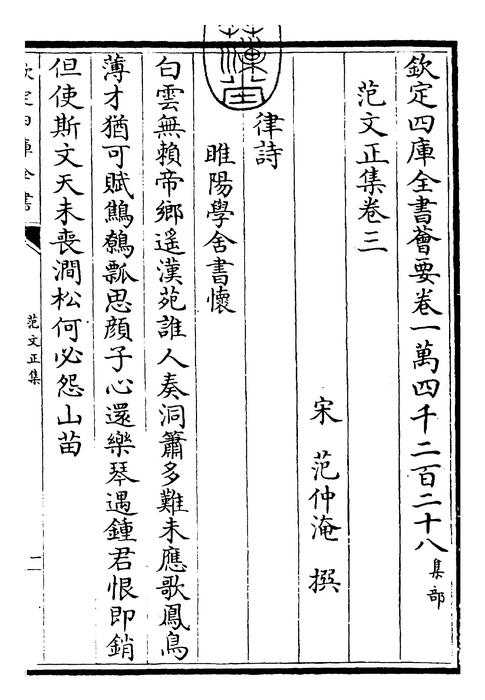 欽定四庫全書薈要卷一萬四千二百二十八 集部
范文正集卷三
宋 范仲淹 撰
律詩
睢陽學舍書懷
白雲無賴帝鄉遥漢苑誰人奏洞簫多難未應歌鳳鳥
薄才猶可賦鷦鷯瓢思顔子心還樂琴遇鍾君恨即銷
但使斯文天未喪澗松何必怨山苗
欽定四庫全書
范文正集